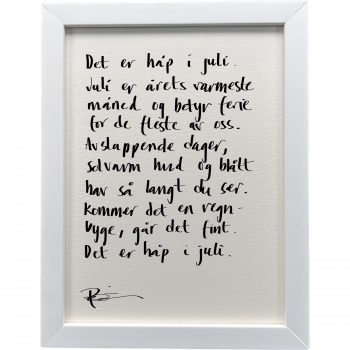 Det er håp i juli.
Juli er årets varmeste
måned og betyr ferie
for de fleste av oss.
Avslappende dager,
solvarm hud og blått
hav så langt du ser.
Kommer det en regn-
byge, går det fint.
Det er håp i juli.